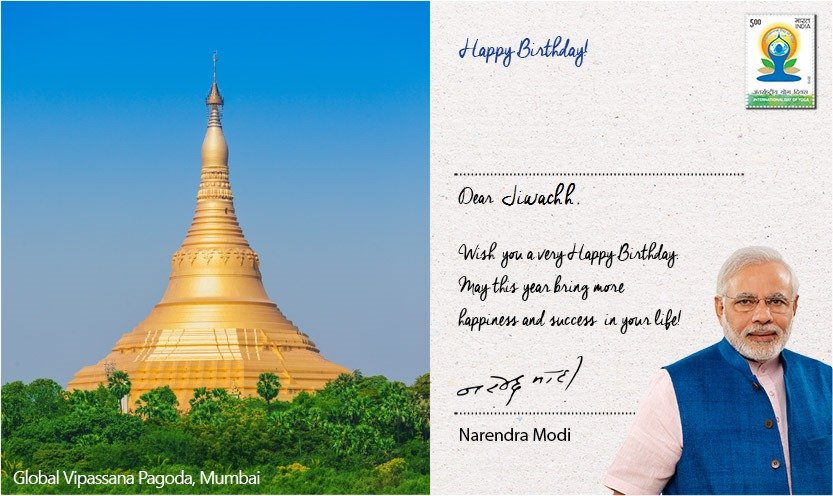 Happy Birthday!
500 भारत
INDIA
अंतर्राष्ट्रीय योग दिवस
INTERNATIONAL DAY OF YOGA
Dear Jiwachh.
Wish you a very Happy Birthday.
May this year bring more
happiness and success in your life!
नरेन्द्र मोदी
Narendra Modi
Global Vipassana Pagoda, Mumbai